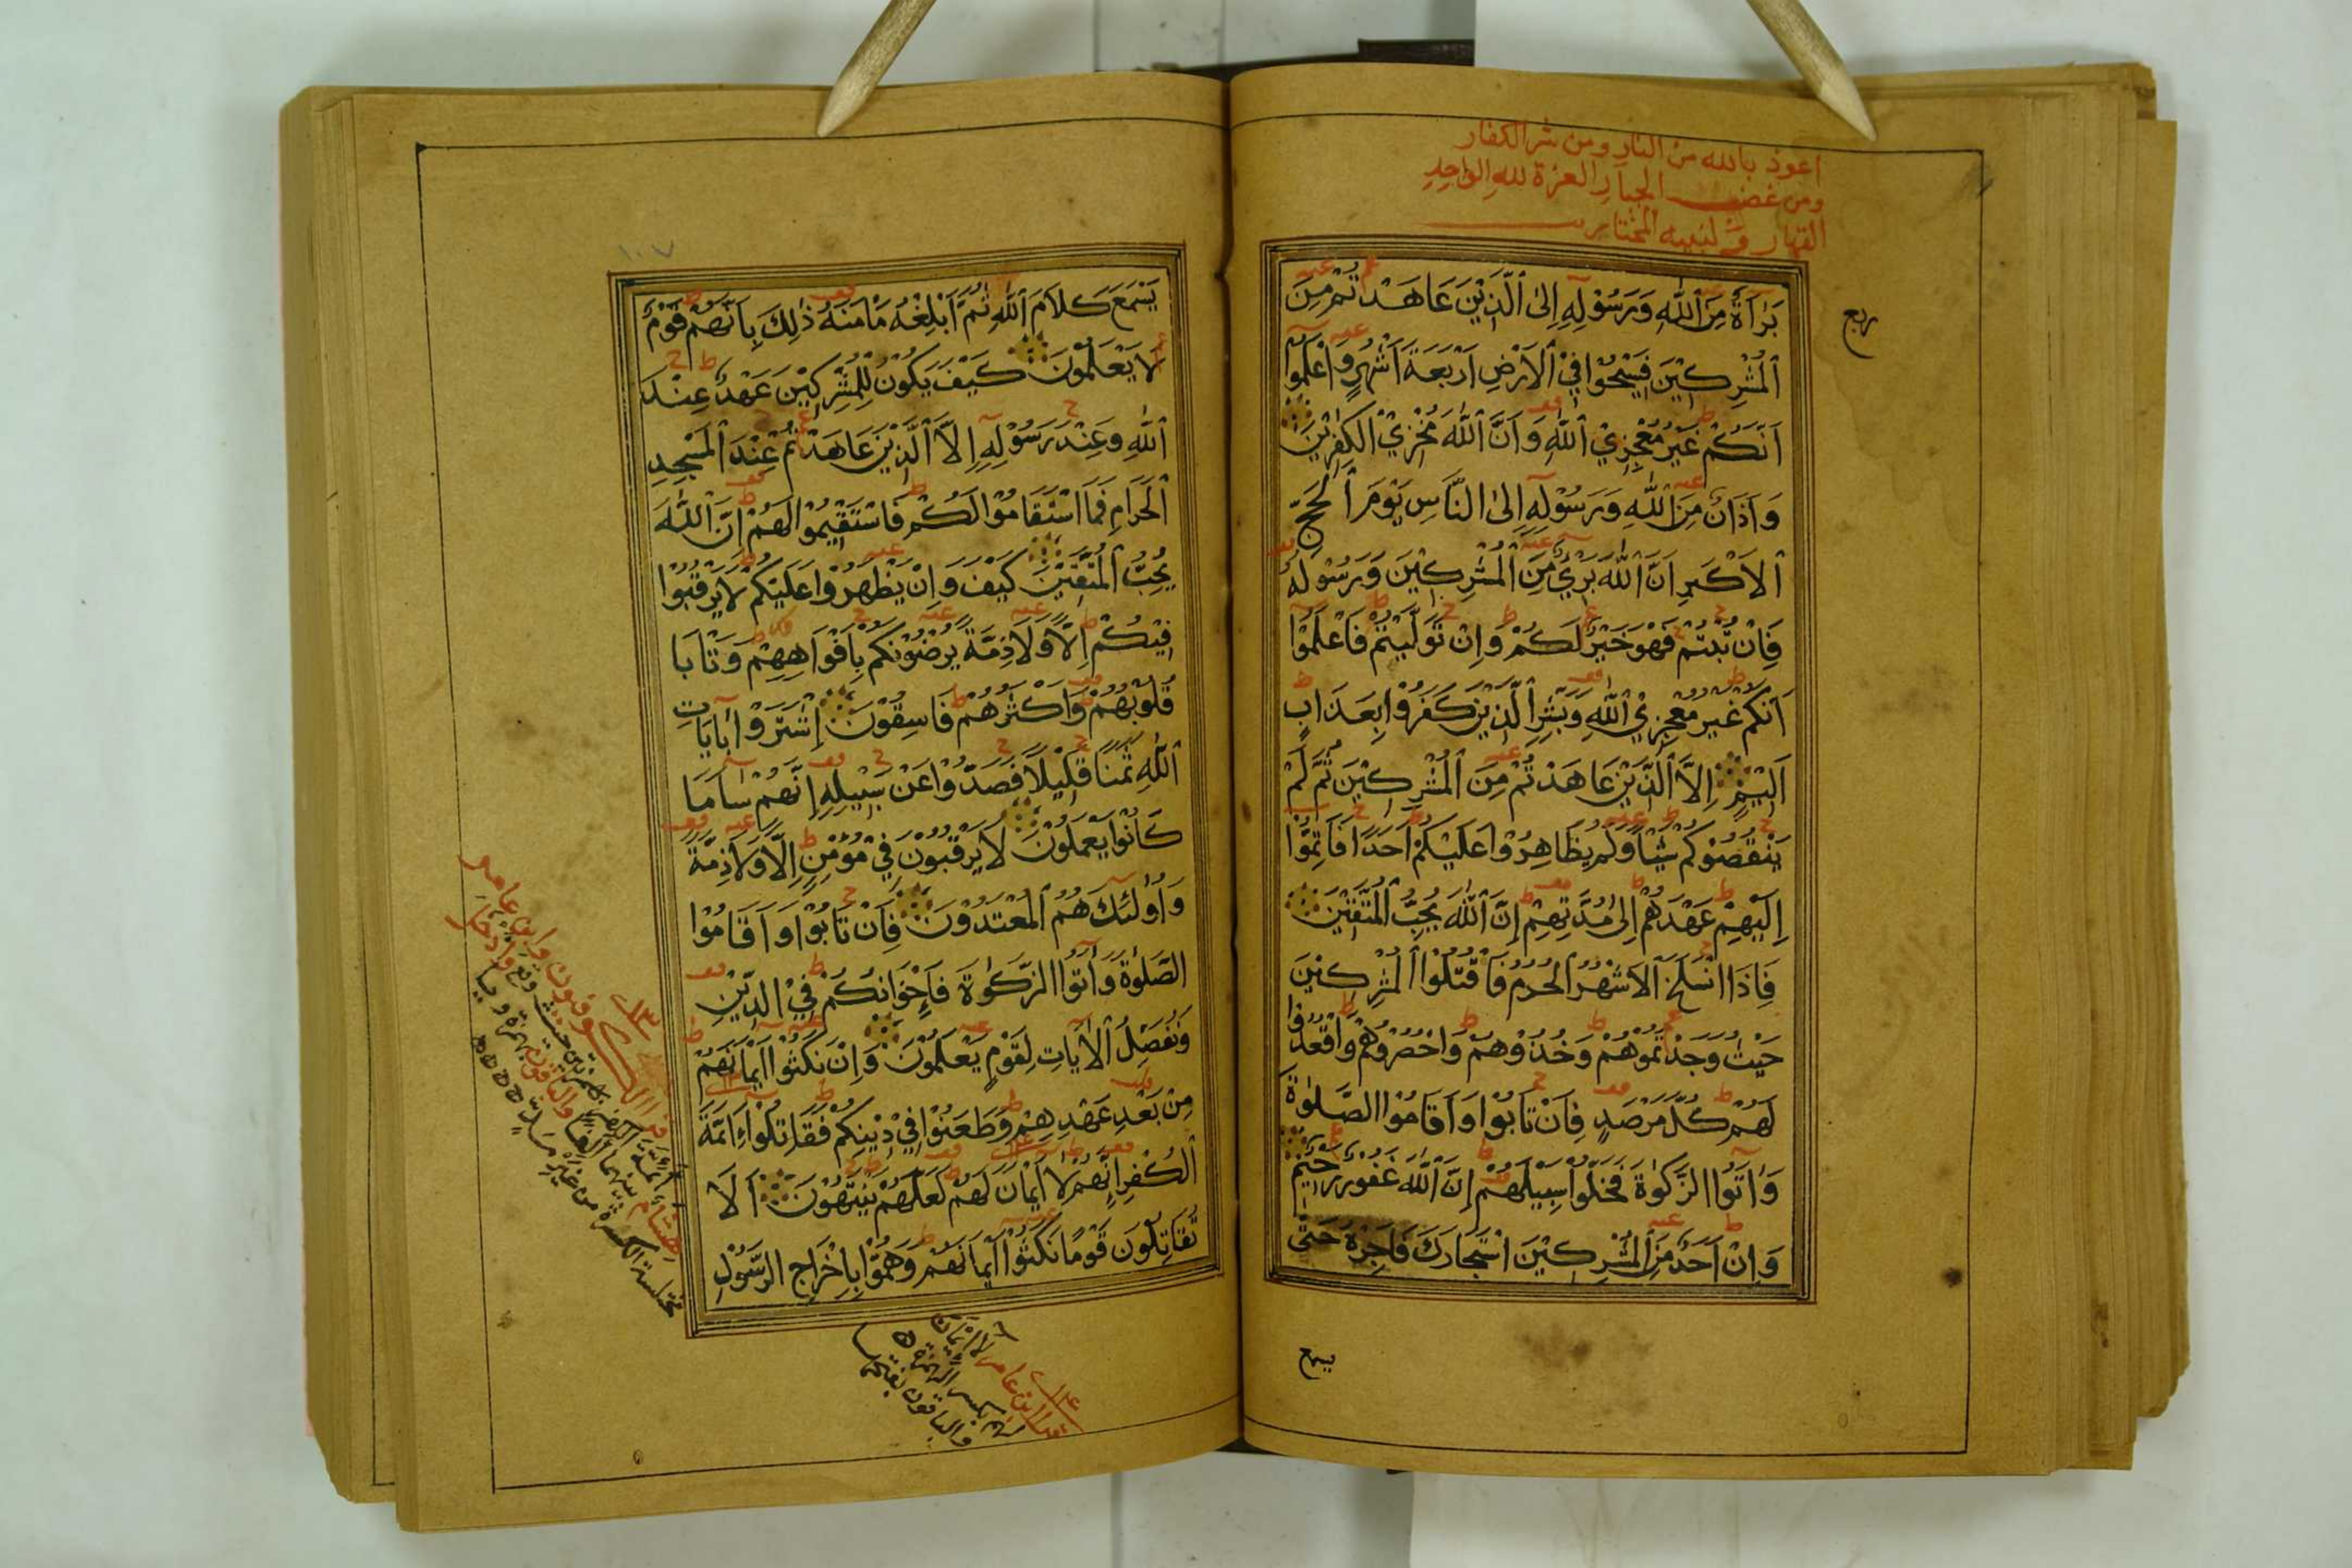 اعوذ بالله من النار ومن شر الكفار
ومن غضب الجبار العزة لله الواحد
القهار ولنبيه المختار
ربع
بَرَاءَةٌ مِنَ ٱللّٰهِ وَرَسُوْلِهٖ اِلَى ٱلَّذِيْنَ عَاهَدْتُمْ مِنَ
ٱلْمُشْرِكِيْنَ فَسِيْحُوْا فِيْ ٱلْاَرْضِ اَرْبَعَةَ اَشْهُرٍ وَاعْلَمُوْا
اَنَّكُمْ غَيْرُ مُعْجِزِيْ ٱللّٰهِ وَاَنَّ ٱللّٰهَ مُخْزِيْ ٱلْكٰفِرِيْنَ
وَاَذَانٌ مِنَ ٱللّٰهِ وَرَسُوْلِهٖ اِلَى النَّاسِ يَوْمَ ٱلْحَجِّ
ٱلْاَكْبَرِ اَنَّ ٱللّٰهَ بَرِيْءٌ مِنَ ٱلْمُشْرِكِيْنَ وَرَسُوْلُهٗ
فَاِنْ تُبْتُمْ فَهُوَ خَيْرٌ لَكُمْ وَاِنْ تَوَلَّيْتُمْ فَاعْلَمُوْا
اَنَّكُمْ غَيْرُ مُعْجِزِيْ ٱللّٰهِ وَبَشِّرِ ٱلَّذِيْنَ كَفَرُوْا بِعَذَابٍ
اَلِيْمٍ اِلَّا ٱلَّذِيْنَ عَاهَدْتُمْ مِنَ ٱلْمُشْرِكِيْنَ ثُمَّ لَمْ
يَنْقُصُوْكُمْ شَيْئًا وَلَمْ يُظَاهِرُوْا عَلَيْكُمْ اَحَدًا فَاَتِمُّوْا
اِلَيْهِمْ عَهْدَهُمْ اِلٰى مُدَّتِهِمْ اِنَّ ٱللّٰهَ يُحِبُّ ٱلْمُتَّقِيْنَ
فَاِذَا انْسَلَخَ ٱلْاَشْهُرُ ٱلْحُرُمُ فَاقْتُلُوْا ٱلْمُشْرِكِيْنَ
حَيْثُ وَجَدْتُمُوْهُمْ وَخُذُوْهُمْ وَاحْصُرُوْهُمْ وَاقْعُدُوْا
لَهُمْ كُلَّ مَرْصَدٍ فَاِنْ تَابُوْا وَاَقَامُوْا الصَّلٰوةَ
وَاٰتَوُا الزَّكٰوةَ فَخَلُّوْا سَبِيْلَهُمْ اِنَّ ٱللّٰهَ غَفُوْرٌ رَحِيْمٌ
وَاِنْ اَحَدٌ مِنَ ٱلْمُشْرِكِيْنَ اسْتَجَارَكَ فَاَجِرْهُ حَتّٰى
يسمع
١٠٧
يَسْمَعَ كَلَامَ ٱللّٰهِ ثُمَّ اَبْلِغْهُ مَأْمَنَهٗ ذٰلِكَ بِاَنَّهُمْ قَوْمٌ
لَا يَعْلَمُوْنَ كَيْفَ يَكُوْنُ لِلْمُشْرِكِيْنَ عَهْدٌ عِنْدَ
ٱللّٰهِ وَعِنْدَ رَسُوْلِهٖ اِلَّا ٱلَّذِيْنَ عَاهَدْتُمْ عِنْدَ ٱلْمَسْجِدِ
ٱلْحَرَامِ فَمَا اسْتَقَامُوْا لَكُمْ فَاسْتَقِيْمُوْا لَهُمْ اِنَّ ٱللّٰهَ
يُحِبُّ ٱلْمُتَّقِيْنَ كَيْفَ وَاِنْ يَظْهَرُوْا عَلَيْكُمْ لَا يَرْقُبُوْا
فِيْكُمْ اِلًّا وَلَا ذِمَّةً يُرْضُوْنَكُمْ بِاَفْوَاهِهِمْ وَتَأْبٰا
قُلُوْبُهُمْ وَاَكْثَرُهُمْ فَاسِقُوْنَ اِشْتَرَوْا بِاٰيَاتِ
ٱللّٰهِ ثَمَنًا قَلِيْلًا فَصَدُّوْا عَنْ سَبِيْلِهٖ اِنَّهُمْ سَآءَ مَا
كَانُوْا يَعْمَلُوْنَ لَا يَرْقُبُوْنَ فِيْ مُؤْمِنٍ اِلًّا وَلَا ذِمَّةً
وَاُولٰئِكَ هُمُ ٱلْمُعْتَدُوْنَ فَاِنْ تَابُوْا وَاَقَامُوْا
الصَّلٰوةَ وَاٰتَوُا الزَّكٰوةَ فَاِخْوَانُكُمْ فِيْ الدِّيْنِ
وَنُفَصِّلُ ٱلْاٰيَاتِ لِقَوْمٍ يَعْلَمُوْنَ وَاِنْ نَكَثُوْا اَيْمَانَهُمْ
مِنْ بَعْدِ عَهْدِهِمْ وَطَعَنُوْا فِيْ دِيْنِكُمْ فَقَاتِلُوْا اَئِمَّةَ
ٱلْكُفْرِ اِنَّهُمْ لَا اَيْمَانَ لَهُمْ لَعَلَّهُمْ يَنْتَهُوْنَ اَلَا
تُقَاتِلُوْنَ قَوْمًا نَكَثُوْا اَيْمَانَهُمْ وَهَمُّوْا بِاِخْرَاجِ الرَّسُوْلِ
قرأ ابن عامر لا ايمان
لهم بكسر الهمزة
والباقون بفتحها